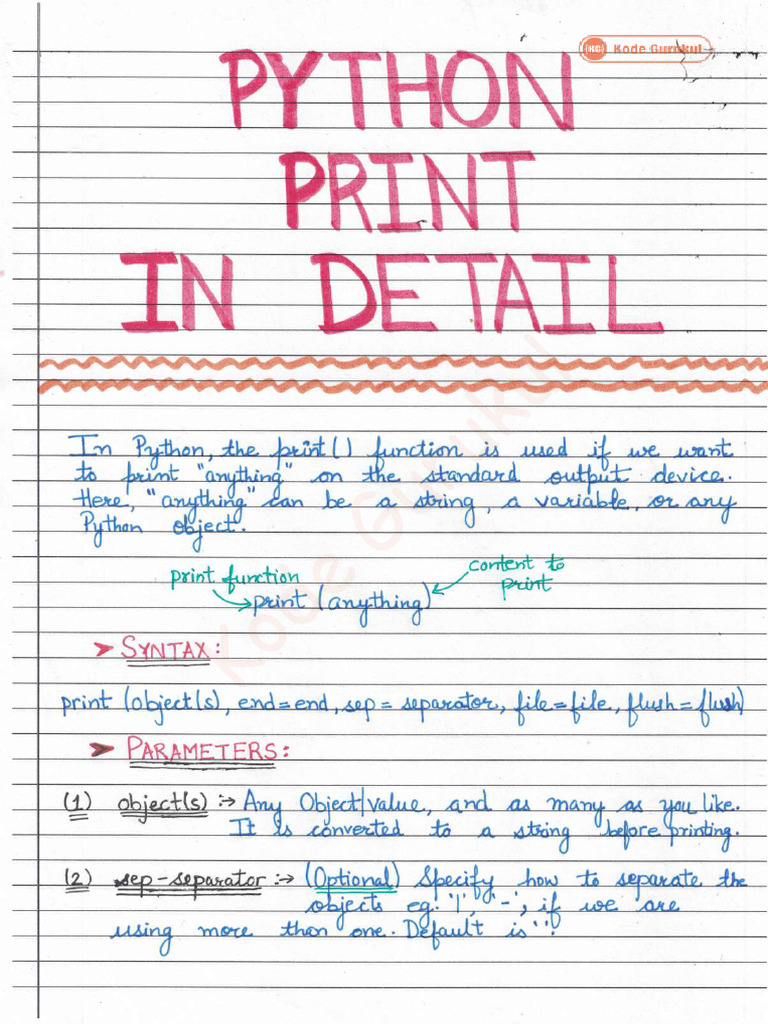 KG Kode Gurukul
PYTHON
PRINT
IN DETAIL
In Python, the print() function is used if we want
to print "anything" on the standard output device.
Here, "anything" can be a string, a variable, or any
Python object.
print function
content to
print
print (anything)
➤ SYNTAX:
print (object(s), end=end, sep = separator, file=file, flush=flush)
➤ PARAMETERS:
(1) object(s) :→ Any Object/value, and as many as you like.
It is converted to a string before printing.
(2) sep-separator :→ (Optional) Specify how to separate the
objects eg: '|', '-', if we are
using more than one. Default is ' '.
Kode Gurukul